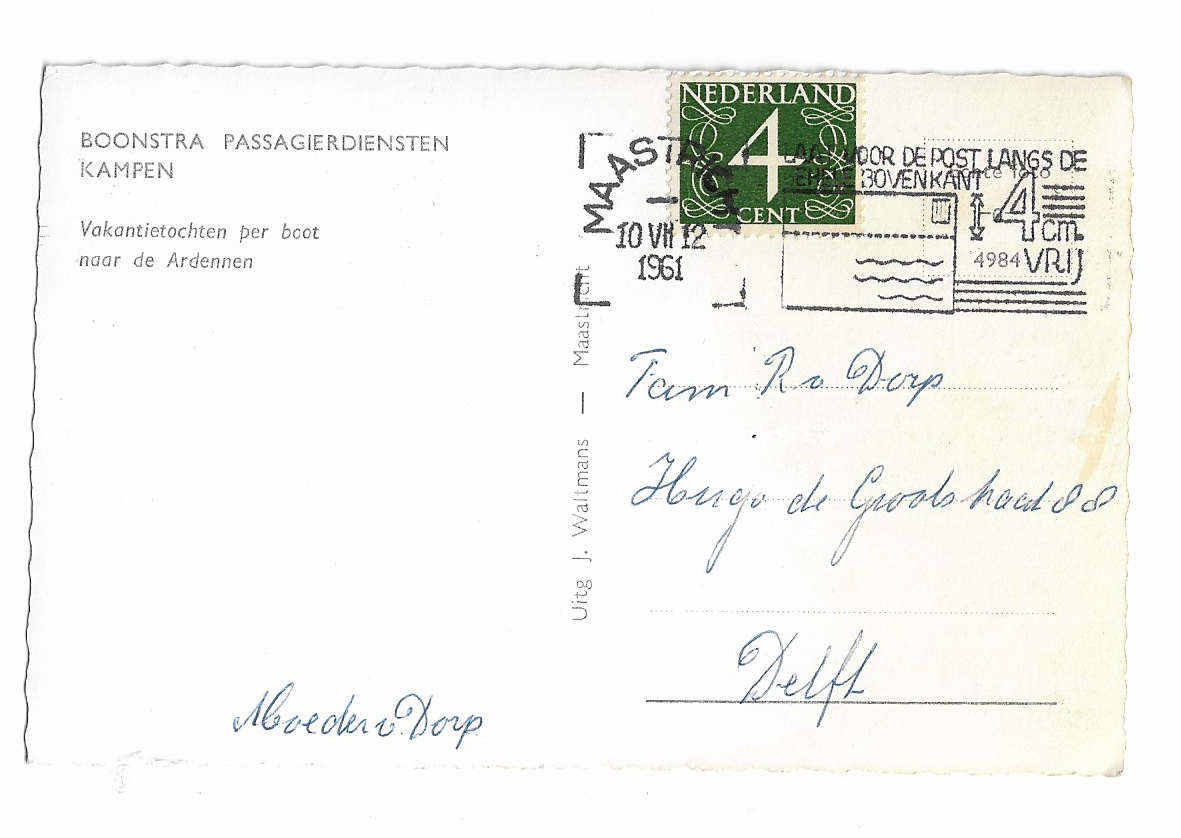 BOONSTRA PASSAGIERDIENSTEN
KAMPEN
Vakantietochten per boot
naar de Ardennen
Moeder v Dorp
Uitg J. Waltmans — Maastricht
NEDERLAND
4
CENT
MAASTRICHT
10 VII 12
1961
VOOR DE POST LANGS DE
BOVENKANT
4
cm.
VRIJ
foto
4984
Fam R v Dorp
Hugo de Grootstraat 88
Delft